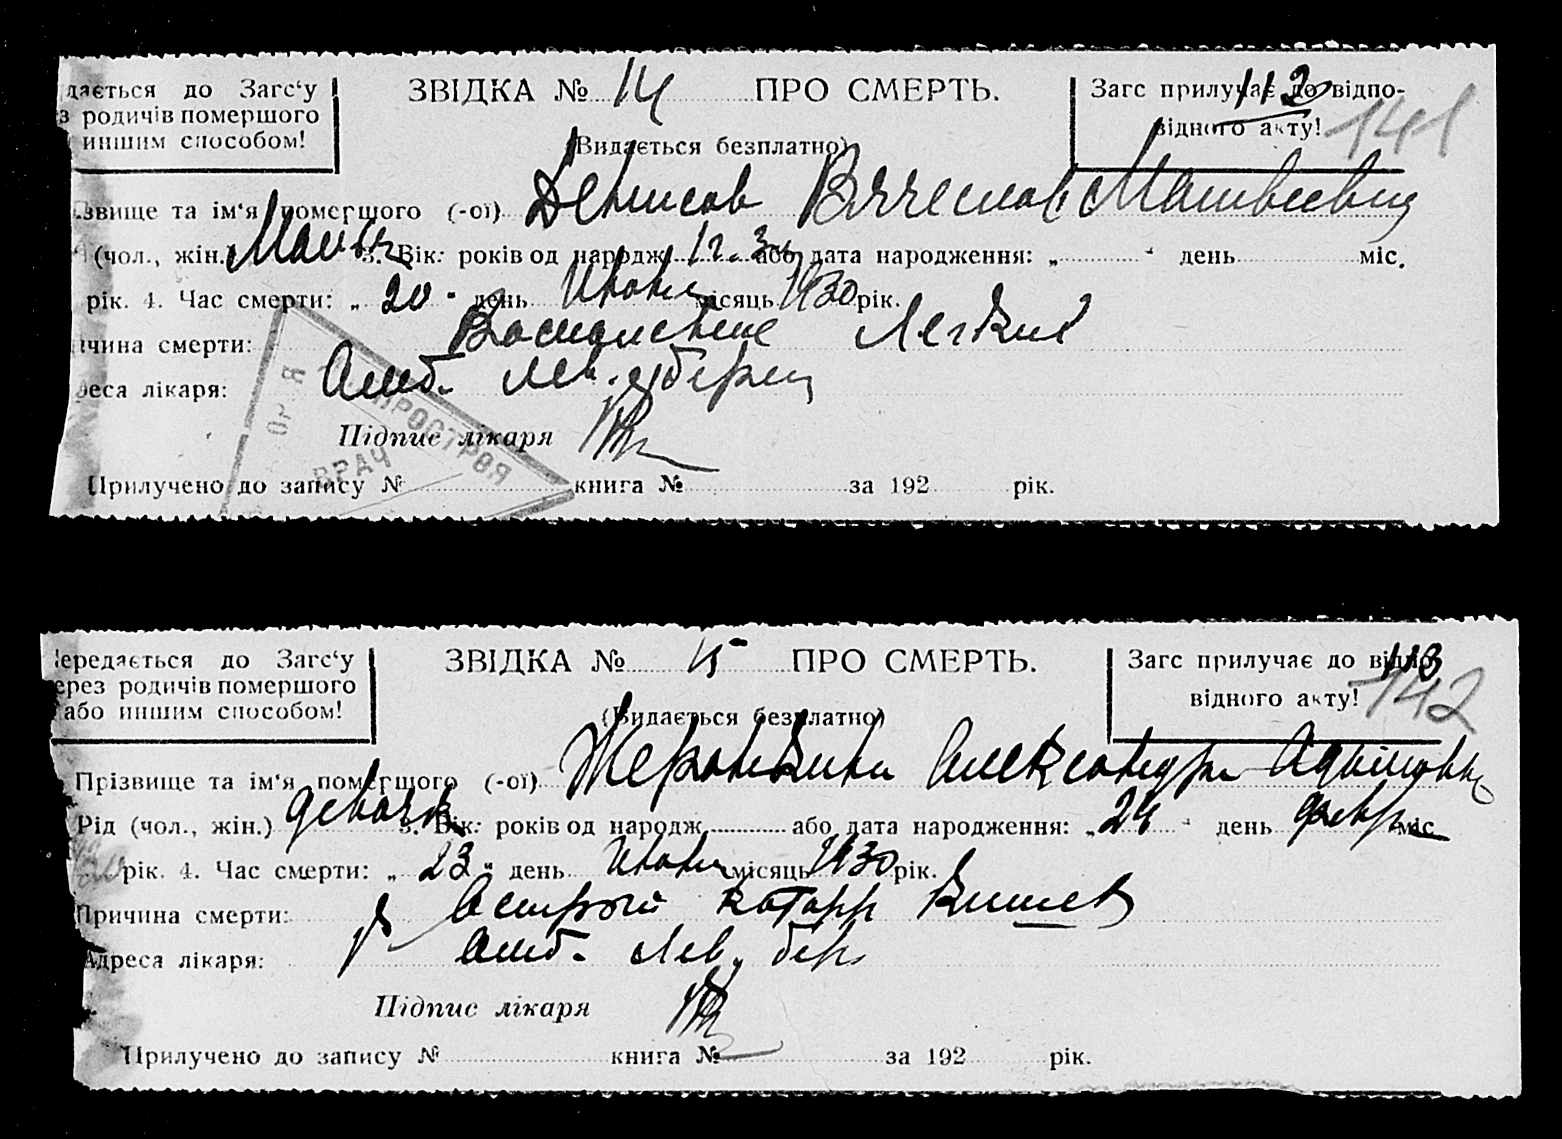 дається до Загс‘у
з родичів помершого
иншим способом!
ЗВІДКА № 14 ПРО СМЕРТЬ.
(Видається безплатно)
Загс прилучає до відпо-
відного акту!
112
141
звище та ім‘я помершого (-ої) Денисов Вячеслав Матвеевич
(чол., жін.) Мальч 3. Вік: років од народж. 1 г. 3 або дата народження: „ “ день міс.
рік. 4. Час смерти: „ 20 “ день Июня місяць 1930 рік.
ичина смерти: Воспаление Легких
реса лікаря: Амб. Лев.
Підпис лікаря
ВРАЧ
Прилучено до запису № книга № за 192 рік.
Передається до Загс‘у
ерез родичів помершого
або иншим способом!
ЗВІДКА № 15 ПРО СМЕРТЬ.
(Видається безплатно)
Загс прилучає до відпо-
відного акту!
113
142
Прізвище та ім‘я помершого (-ої) Александра
Рід (чол., жін.) девочк 3. Вік: років од народж. або дата народження: „ 24 “ день февр міс
рік. 4. Час смерти: „ 23 “ день Июня місяць 1930 рік.
Причина смерти: Острый катарр Кишек
Адреса лікаря: Амб. Лев. бер
Підпис лікаря
Прилучено до запису № книга № за 192 рік.